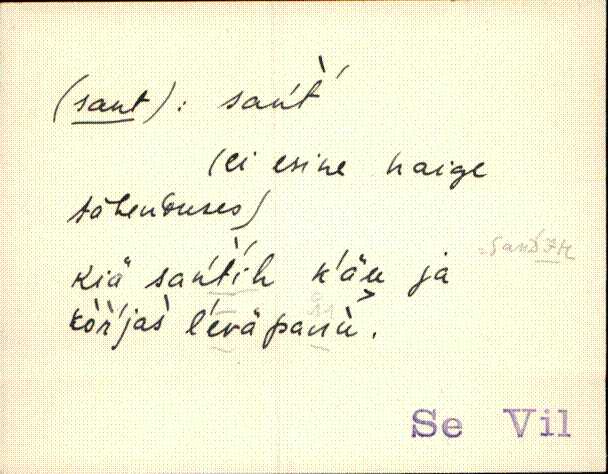 (sant): sańt̀'
(ei esine haige
tähenduses)
kiä sańt̀ih k'äü ja
kòr̀'jas̀ l'eväpanù.
Se Vil